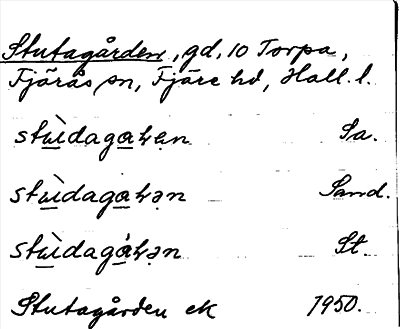 Stutagården, gd, 10 Torpa,
Fjärås sn, Fjäre hd, Hall. l.
stùdagaƕen Sa.
stùdagaƕən Sand.
stùdagáƕən St.
Stutagården ek 1950.